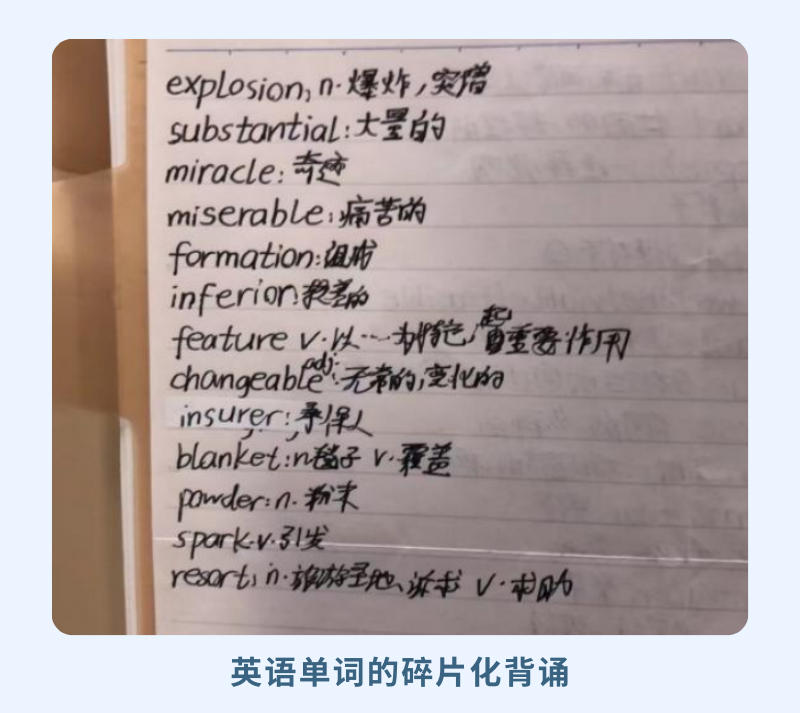 explosion; n. 爆炸,突增
substantial:大量的
miracle:奇迹
miserable:痛苦的
formation:组成
inferior:较差的
feature v.以…为特色,起重要作用
changeable adj.:无常的,变化的
insurer:承保人
blanket:n毯子 v.覆盖
powder:n.粉末
spark.v.引发
resort; n.旅游圣地、诉求 v.求助
英语单词的碎片化背诵